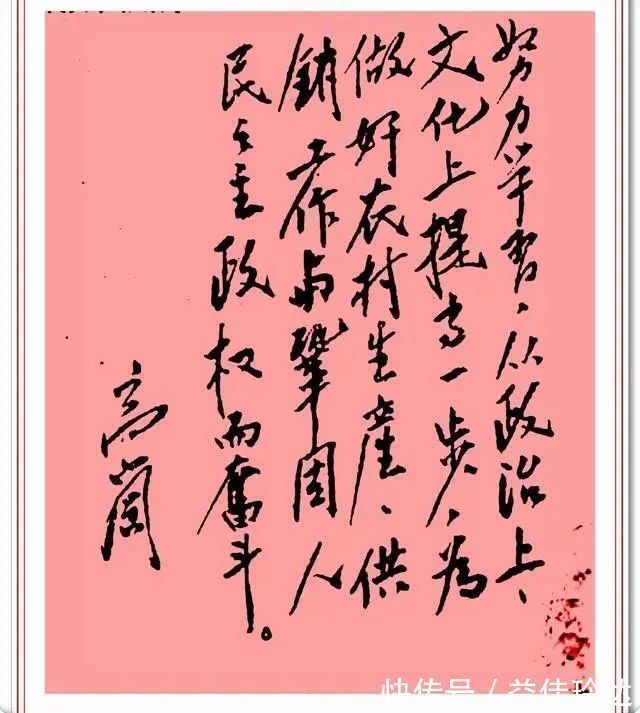 努力学习、从政治上、
文化上提高一步、为
做好农村生產、供
销工作与鞏固人
民々主政权而奮斗。
高崗
快传号 / 益佳珍达